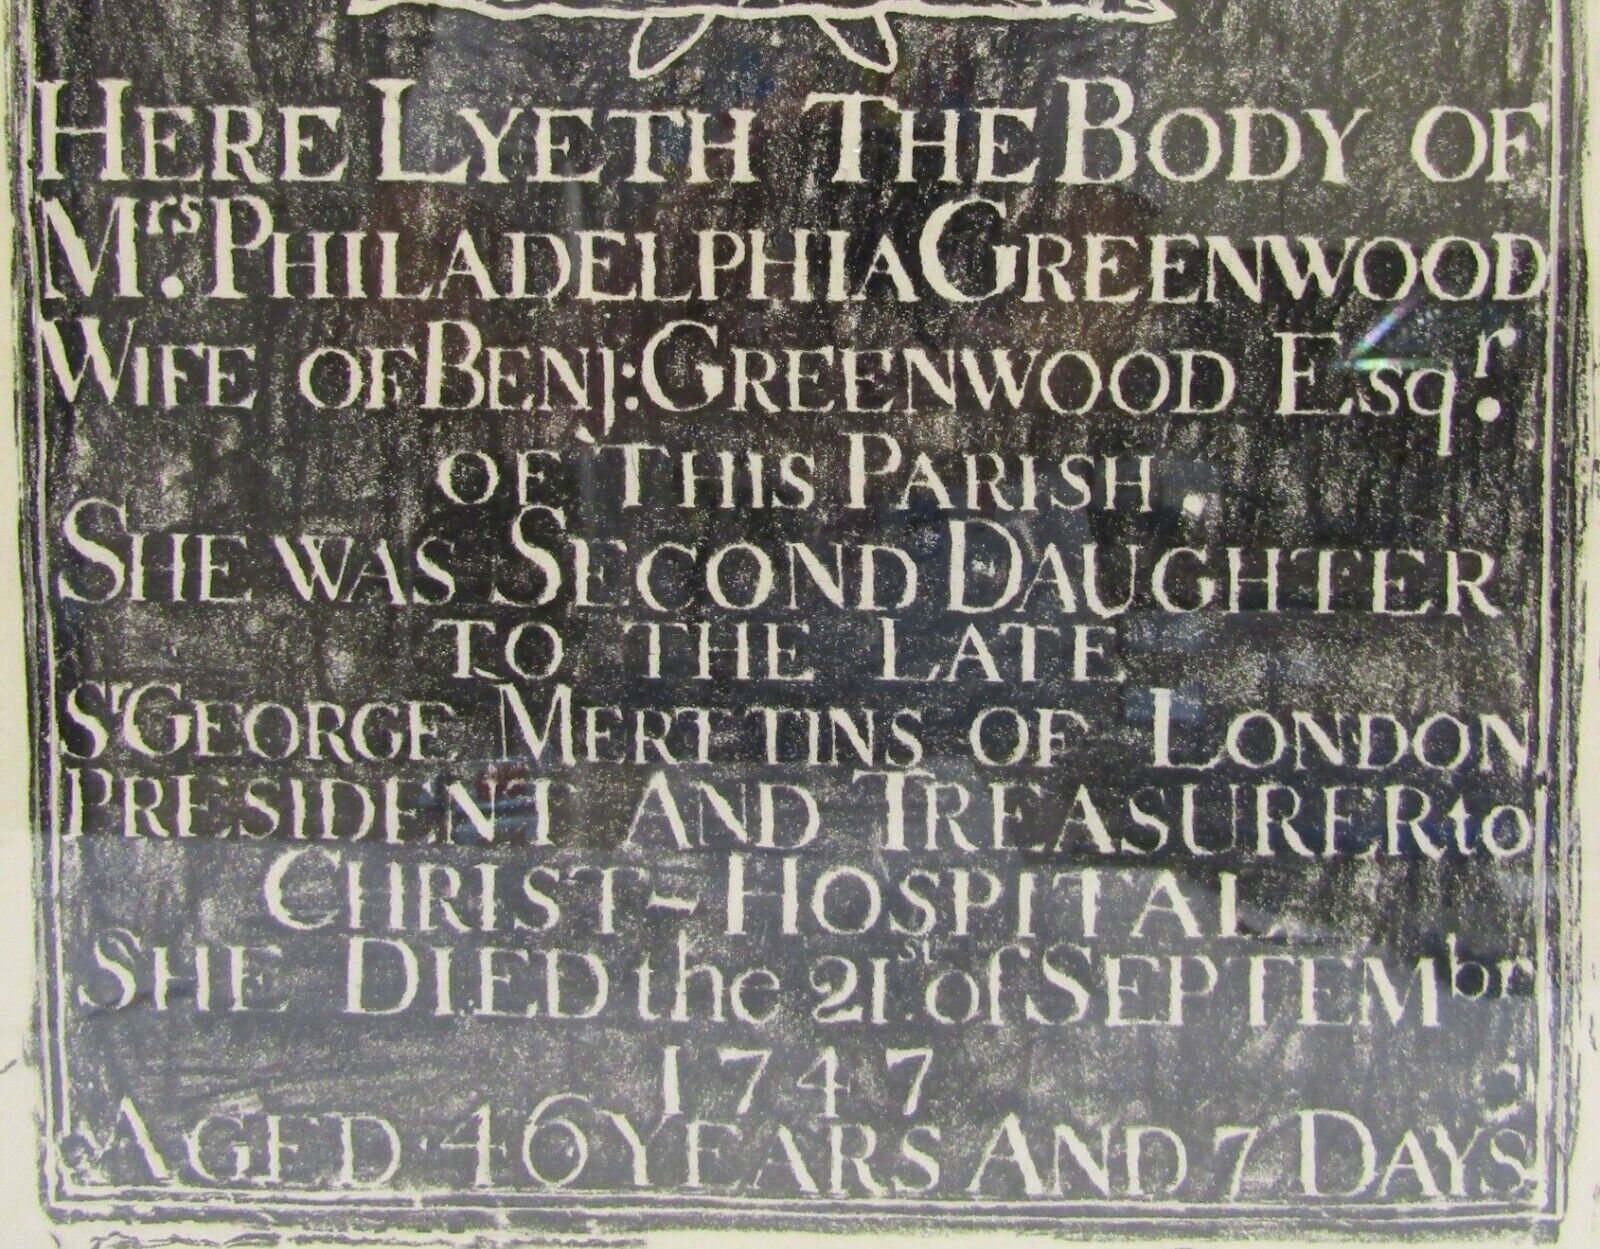 HERE LYETH THE BODY OF
Mrs. PHILADELPHIA GREENWOOD
WIFE OF BENJ: GREENWOOD Esqr.
OF THIS PARISH.
SHE WAS SECOND DAUGHTER
TO THE LATE
Sr GEORGE MERTTINS OF LONDON
PRESIDENT AND TREASURER to
CHRIST-HOSPITAL
SHE DIED the 21st. of SEPTEMbr
1747
AGED 46 YEARS AND 7 DAYS